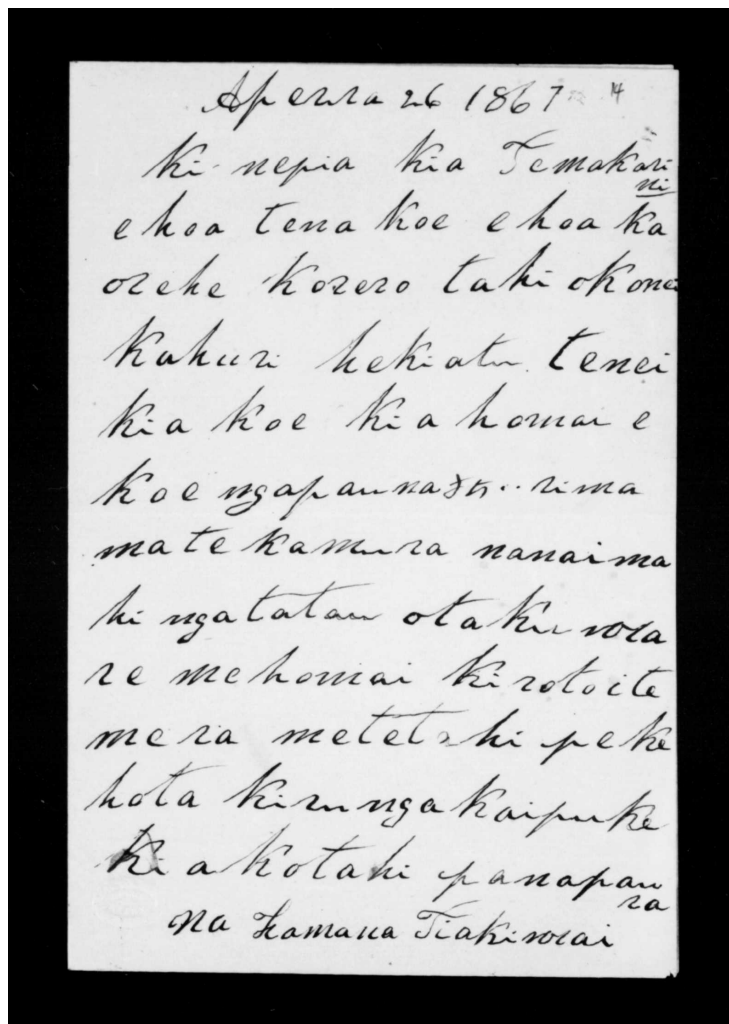 Aperira 26 1867 14
Ki nepia kia Temakari
ni
ehoa tena koe ehoa ka
orehe korero tahi okonei
kahuri hekiatu tenei
kia koe kia homai e
koe ngapauna £5.. rima
mate kamura nanaima
hi ngatatau otaku wha
re mehomai kirotoite
mera metetahi peke
hota kirungakaipuke
kia kotahi panapau
ra
na Hamana Tiakiwai